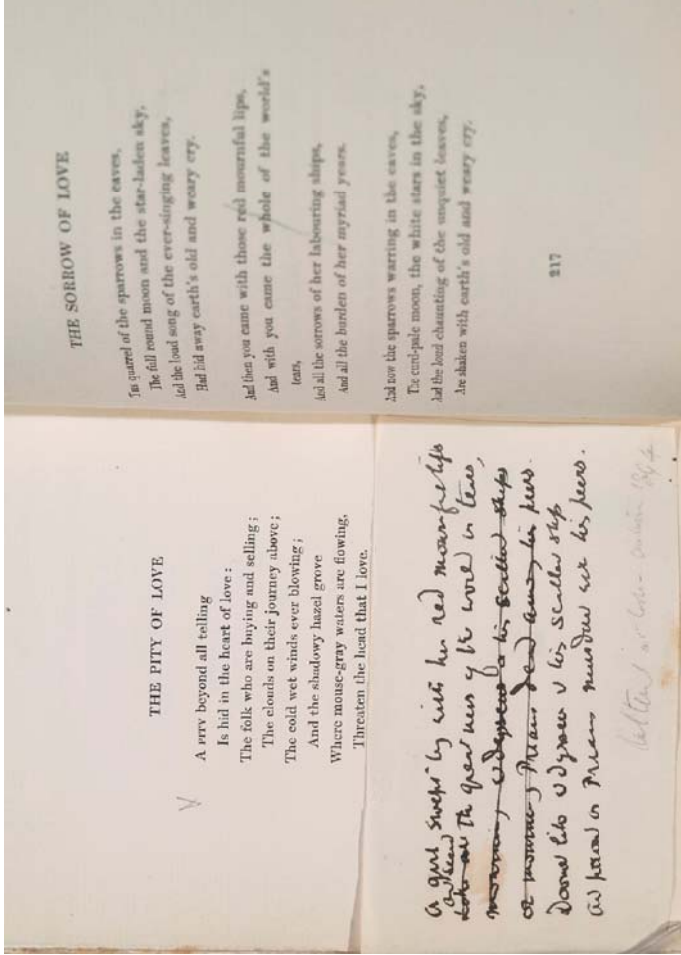 THE PITY OF LOVE
A PITY beyond all telling
Is hid in the heart of love:
The folk who are buying and selling;
The clouds on their journey above;
The cold wet winds ever blowing;
And the shadowy hazel grove
Where mouse-gray waters are flowing,
Threaten the head that I love.
A girl swept by with her red mournful lips
the greatness of the world in tears,
mourning, Odysseus & his ships
or mourning Priam dead among his peers
Doomed like Odysseus & his ships
And proud as Priam murdered with his peers.
THE SORROW OF LOVE
THE quarrel of the sparrows in the eaves,
The full round moon and the star-laden sky,
And the loud song of the ever-singing leaves,
Had hid away earth's old and weary cry.
And then you came with those red mournful lips,
And with you came the whole of the world's
tears,
And all the sorrows of her labouring ships,
And all the burden of her myriad years.
And now the sparrows warring in the eaves,
The curd-pale moon, the white stars in the sky,
And the loud chaunting of the unquiet leaves,
Are shaken with earth's old and weary cry.
217